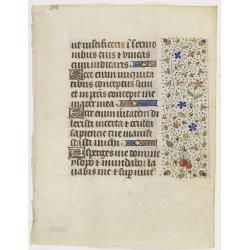 ut iustificeris i sermo
nibus tuis et vincas
cum iudicaris
Ecce enim iniquita
tibus conceptus sum
et in pctis concepit me
mater mea
Ecce enim veritatem di
lexisti incerta et occulta
sapiencie tue manife
stasti michi
Asperges me domine
ysopo et mundabor la
vabis me et super niue